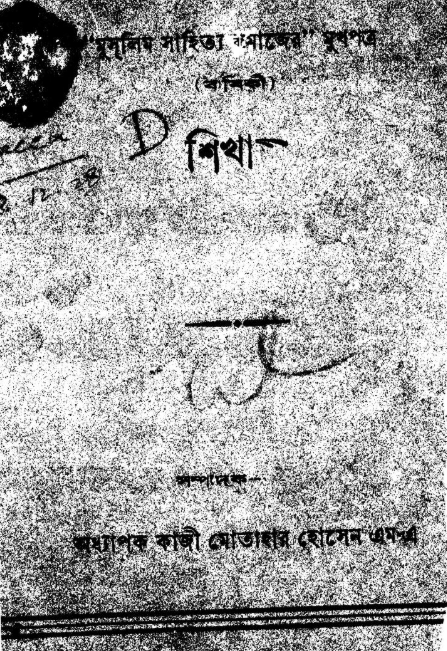 "মুসলিম সাহিত্য সমাজের" মুখপত্র
(বার্ষিকী)
D
শিখা—
সম্পাদক—
অধ্যাপক কাজী মোতাহার হোসেন এম-এ